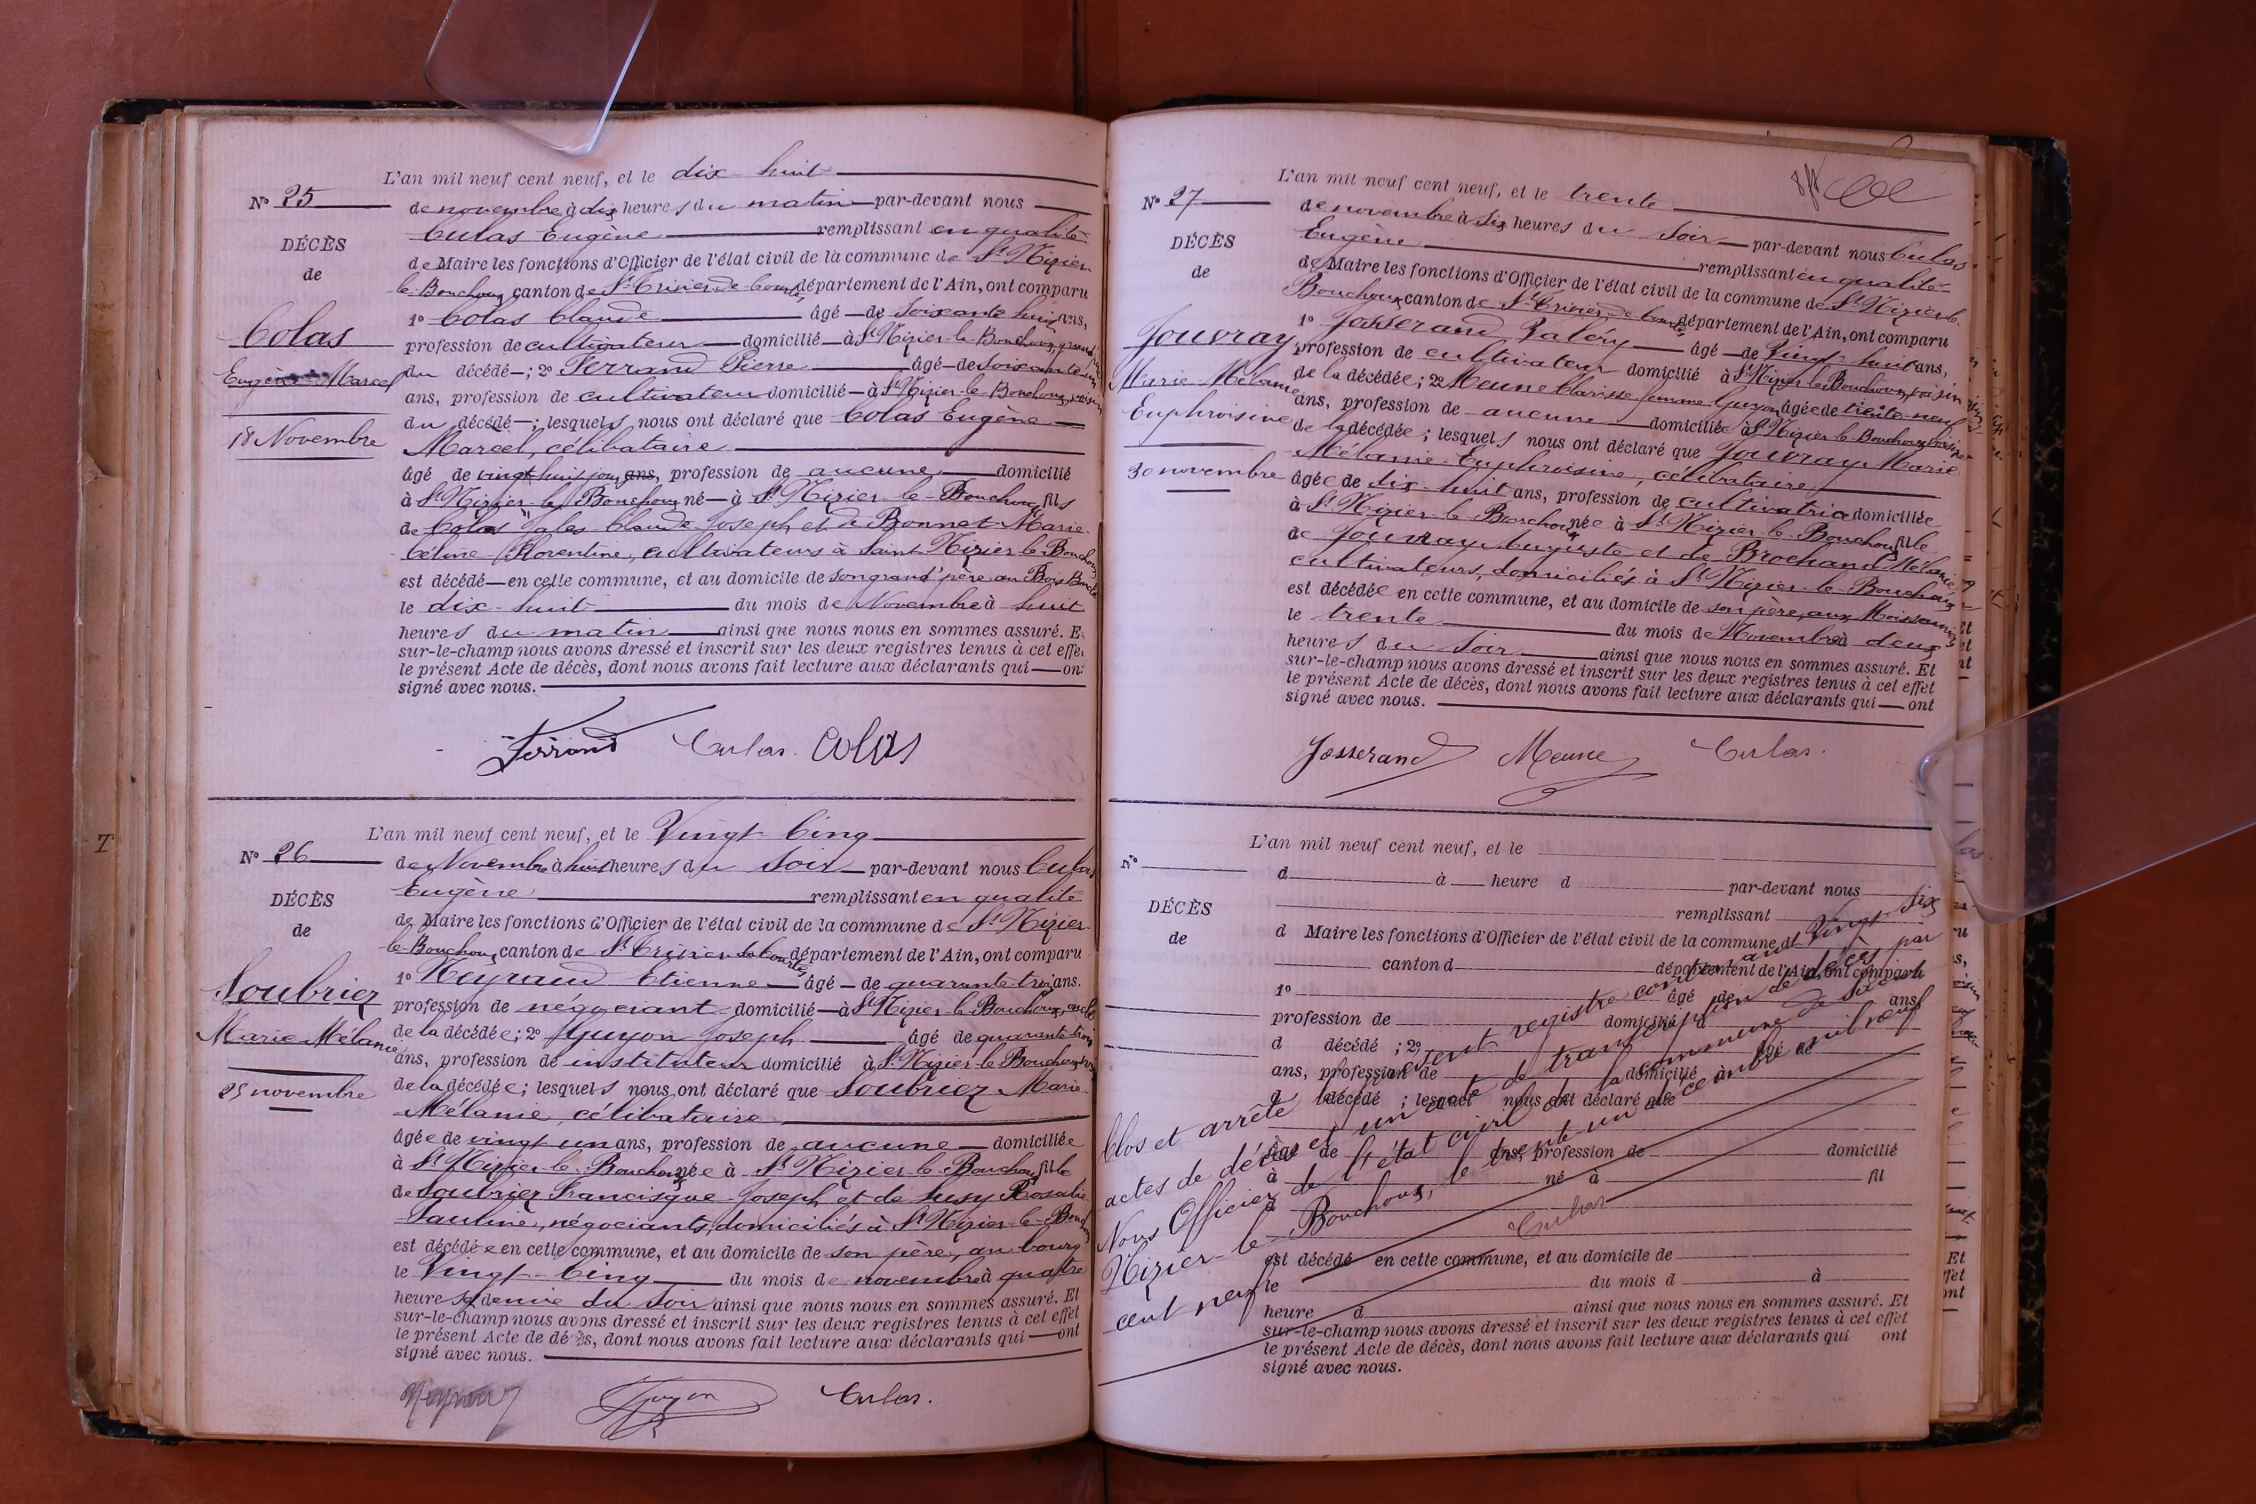 L'an mil neuf cent neuf, et le dix huit
N° 25
de novembre à dix heures du matin par-devant nous
Culas Eugène remplissant en qualité
DÉCÈS
de Maire les fonctions d'Officier de l'état civil de la commune de St Nizier
de
le-Bouchoux canton de St Trivier de Courtes département de l'Ain, ont comparu
1° Colas Claude âgé de soixante huit ans,
Colas
profession de cultivateur domicilié à St Nizier le Bouchoux, grand
Eugène Marcel
du décédé ; 2° Ferrand Pierre âgé de soixante
ans, profession de cultivateur domicilié à St Nizier le Bouchoux, voisin
du décédé ; lesquels nous ont déclaré que Colas Eugène
18 Novembre
Marcel, célibataire
âgé de vingt huit jours ans, profession de aucune domicilié
à St Nizier le Bouchoux né à St Nizier le Bouchoux fils
de Colas Jules Claude Joseph et de Bonnet Marie
Céline Florentine, cultivateurs à Saint Nizier le Bouchoux
est décédé en cette commune, et au domicile de son grand'père au Bois
le dix-huit du mois de Novembre à huit
heures du matin ainsi que nous nous en sommes assuré. E
sur-le-champ nous avons dressé et inscrit sur les deux registres tenus à cet effet
le présent Acte de décès, dont nous avons fait lecture aux déclarants qui ont
signé avec nous.
Ferrand Culas. Colas
L'an mil neuf cent neuf, et le Vingt Cinq
N° 26
de Novembre à huit heures du soir par-devant nous Culas
Eugène remplissant en qualité
DÉCÈS
de Maire les fonctions d'Officier de l'état civil de la commune de St Nizier
de
le-Bouchoux canton de St Trivier de Courtes département de l'Ain, ont comparu
1° Neyraud Etienne âgé de quarante trois ans.
Soubrier
profession de négociant domicilié à St Nizier le Bouchoux, oncle
Marie Mélanie
de la décédée ; 2° Guyon Joseph âgé de quarante
ans, profession de instituteur domicilié à St Nizier le Bouchoux
25 novembre
de la décédée ; lesquels nous ont déclaré que Soubrier Marie
Mélanie, célibataire
âgée de vingt un ans, profession de aucune domiciliée
à St Nizier le Bouchoux née à St Nizier le Bouchoux fille
de Soubrier Francisque Joseph et de Rosalie
Pauline, négociants, domiciliés à St Nizier le Bouchoux
est décédée en cette commune, et au domicile de son père, au bourg
le Vingt-Cinq du mois de novembre à quatre
heures et demie du soir ainsi que nous nous en sommes assuré. Et
sur-le-champ nous avons dressé et inscrit sur les deux registres tenus à cet effet
le présent Acte de décès, dont nous avons fait lecture aux déclarants qui ont
signé avec nous.
Neyraud Guyon Culas.
L'an mil neuf cent neuf, et le trente
N° 27
de novembre à six heures du soir par-devant nous Culas
Eugène remplissant en qualité
DÉCÈS
de Maire les fonctions d'Officier de l'état civil de la commune de St Nizier le
de
Bouchoux canton de St Trivier de Courtes département de l'Ain, ont comparu
1° Josserand Valéry âgé de Vingt-huit ans,
Jouvray
profession de cultivateur domicilié à St Nizier le Bouchoux, voisin
Marie Mélanie
de la décédée ; 2° Meune Clarisse femme Guyon âgée de trente-neuf
Euphroisine
ans, profession de aucune domiciliée à St Nizier le Bouchoux voisine
de la décédée ; lesquels nous ont déclaré que Jouvray Marie
30 novembre
Mélanie Euphroisine, célibataire
âgée de dix-huit ans, profession de cultivatrice domiciliée
à St Nizier le Bouchoux née à St Nizier le Bouchoux fille
de Jouvray Auguste et de Brochand Mélanie
cultivateurs, domiciliés à St Nizier le Bouchoux
est décédée en cette commune, et au domicile de son père, aux
le trente du mois de Novembre à deux
heures du soir ainsi que nous nous en sommes assuré. Et
sur-le-champ nous avons dressé et inscrit sur les deux registres tenus à cet effet
le présent Acte de décès, dont nous avons fait lecture aux déclarants qui ont
signé avec nous.
Josserand Meune Culas.
L'an mil neuf cent neuf, et le
N°
d à heure d par-devant nous
remplissant
DÉCÈS
d Maire les fonctions d'Officier de l'état civil de la commune d
de
canton d département de l'Ain, ont comparu
1° âgé de ans,
profession de domicilié à
d décédé ; 2° âgé de
ans, profession de domicilié à
d décédé ; lesquel nous ont déclaré que
âgé de ans, profession de domicilié
à né à fil
d
est décédé en cette commune, et au domicile de
le du mois d à
heure d ainsi que nous nous en sommes assuré. Et
sur-le-champ nous avons dressé et inscrit sur les deux registres tenus à cet effet
le présent Acte de décès, dont nous avons fait lecture aux déclarants qui ont
signé avec nous.
Clos et arrêté le présent registre contenant Vingt-six
actes de décès et un acte de transcription de décès par
Nous Officier de l'état civil de la commune de Saint
Nizier-le-Bouchoux, le trente un décembre mil neuf
cent neuf
Culas